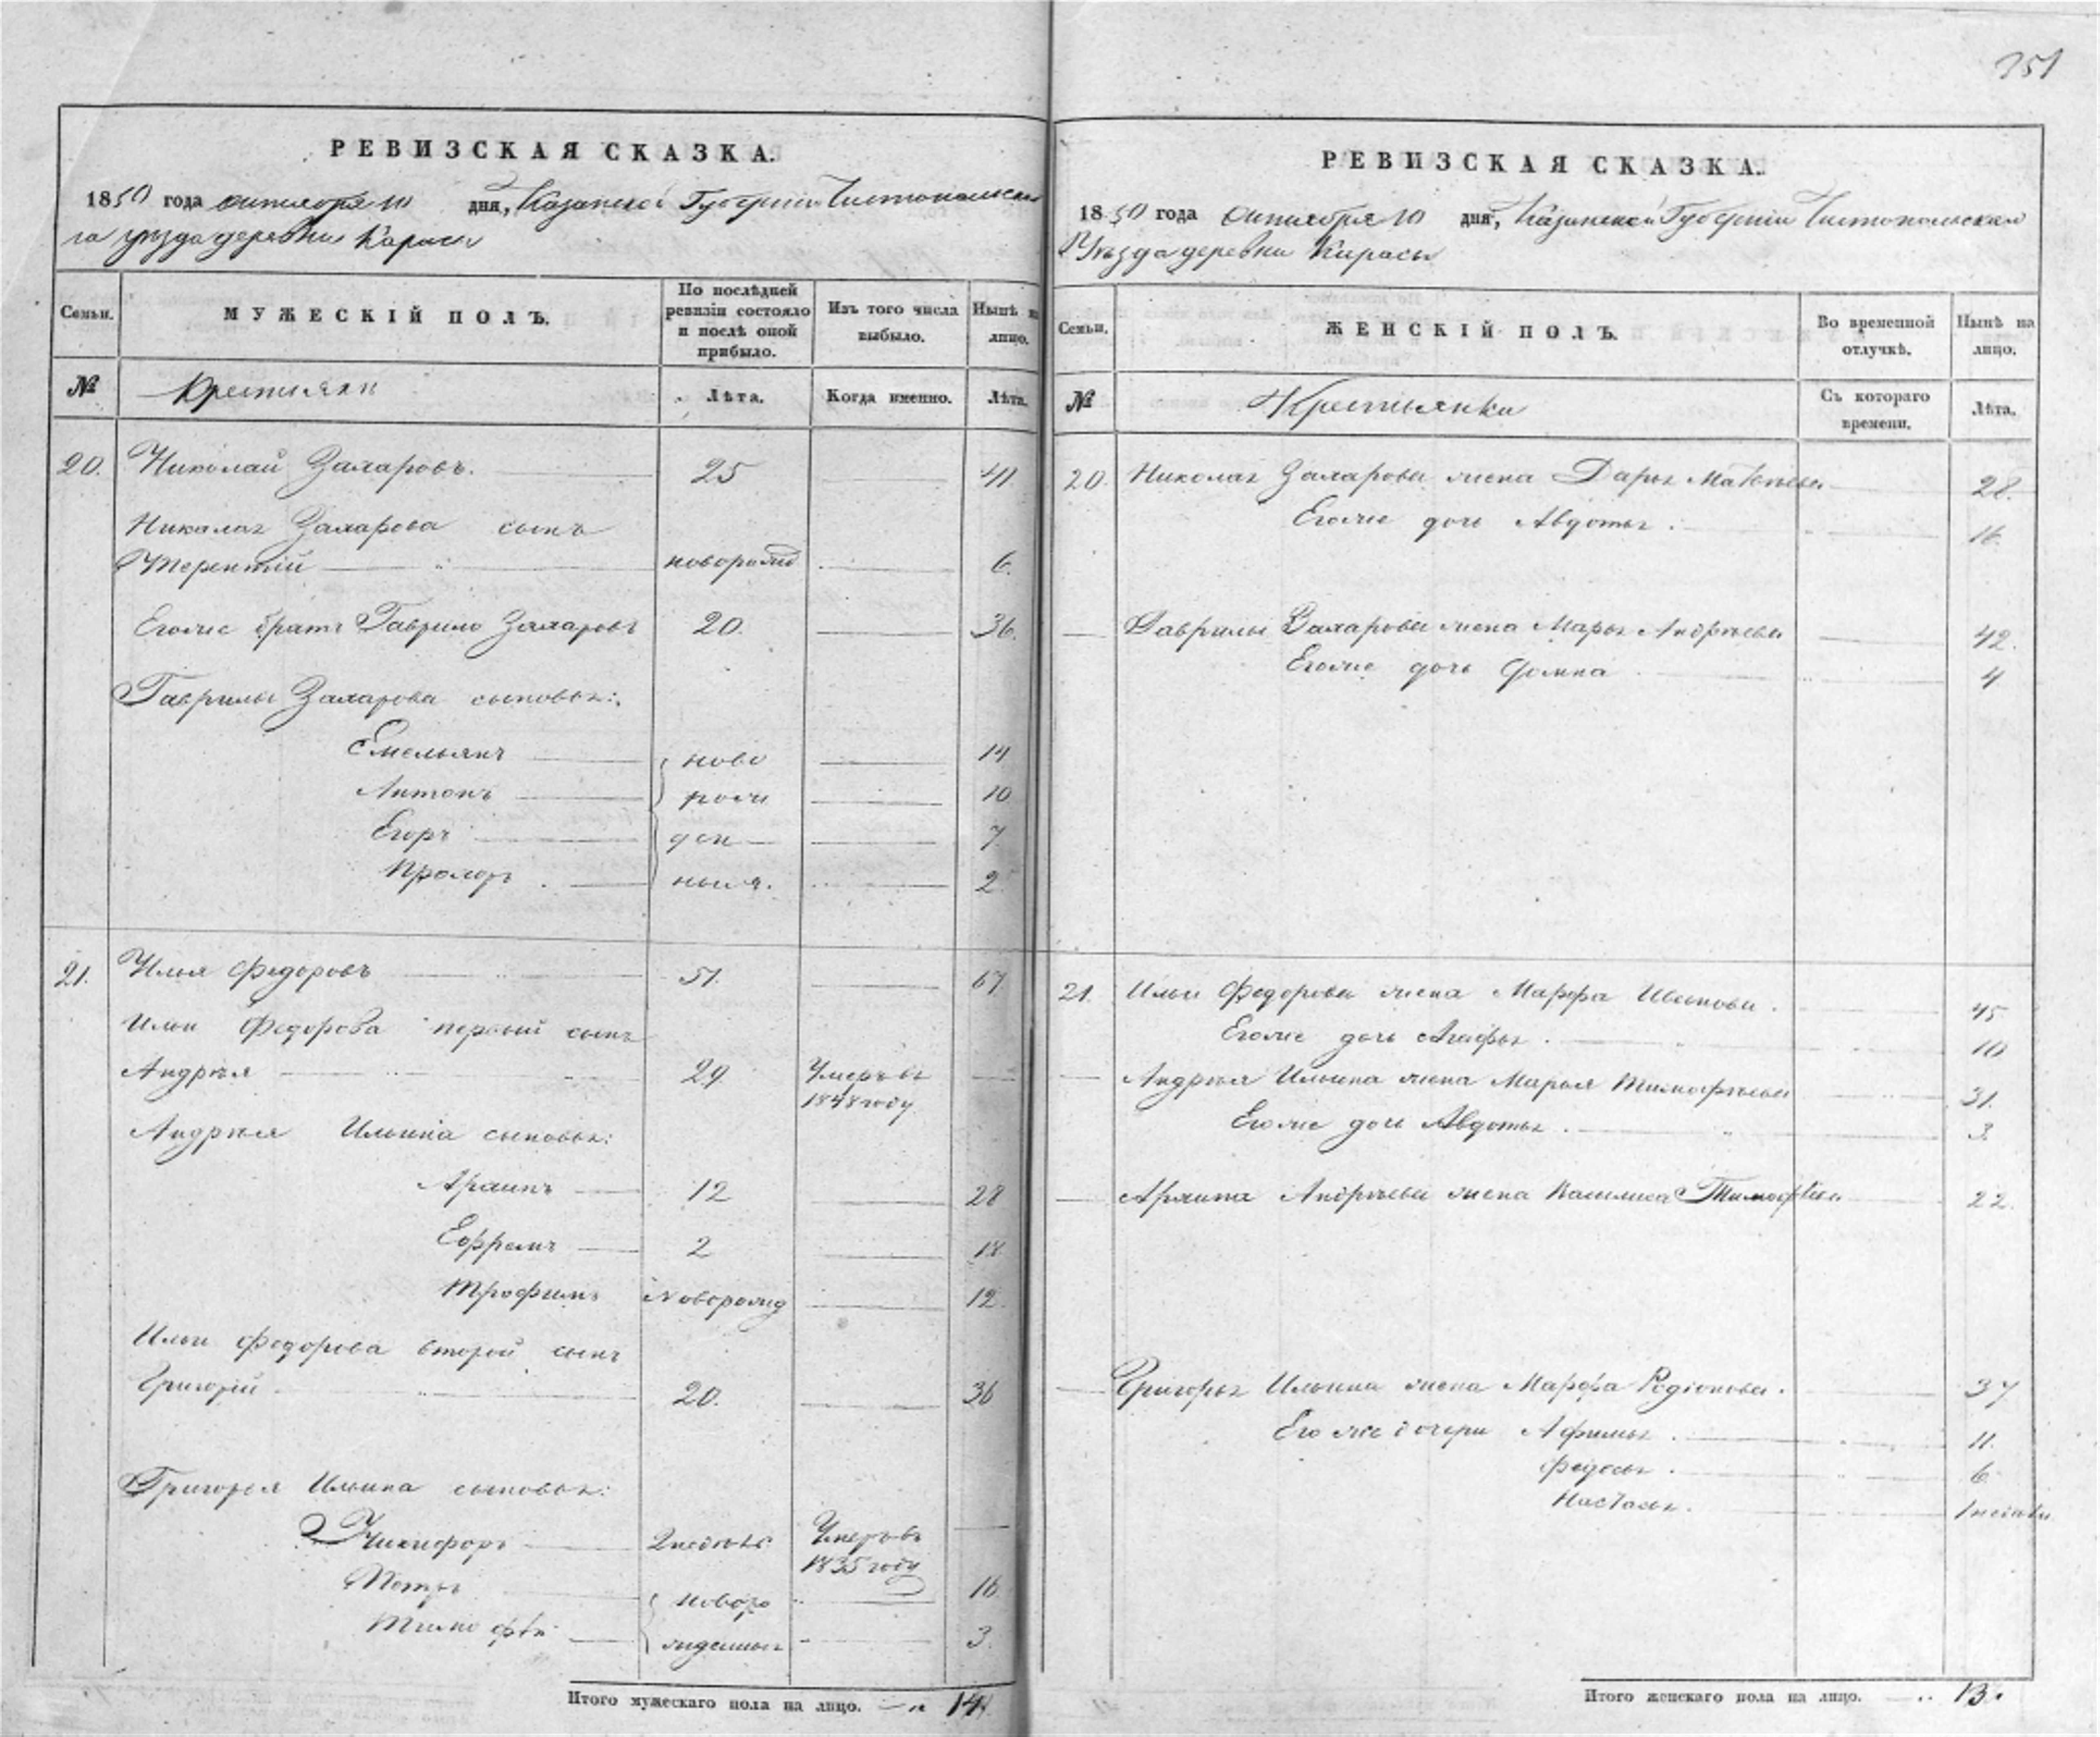 351
РЕВИЗСКАЯ СКАЗКА.
1850 года октября 10 дня, Казанской Губернии Чистопольска
го уезда деревни Карасы
Семьи.
МУЖЕСКІЙ ПОЛЪ.
По послѣдней ревизіи состояло и послѣ оной прибыло.
Изъ того числа выбыло.
Нынѣ на лицо.
№
Крестьяни
Лѣта.
Когда именно.
Лѣта.
20. Николай Захаровъ. 25 41
Николая Захарова сынъ
Терентій новорожд 6.
Егоже братъ Гаврило Захаровъ 20. 36.
Гаврилы Захарова сыновья:
Емельянъ ново 14
Антонъ рож 10
Егоръ ден 7
Прохоръ ныя. 2
21. Илья Федоровъ 51. 67
Ильи Федорова первый сынъ
Андрѣя 29 Умеръ въ
1848 году
Андрѣя Ильина сыновья:
12 28
Ефремъ 2 18
Трофимъ Новорожд 12.
Ильи Федорова второй сынъ
Григорій 20. 36
Григорья Ильина сыновья:
Никифоръ 2 недѣль Умеръ въ
1835 году
Петръ новоро 16
Тимофѣй жденныя 3.
Итого мужескаго пола на лицо. 14
РЕВИЗСКАЯ СКАЗКА.
1850 года Октября 10 дня, Казанской Губерніи Чистопольскаго
Уѣзда деревни Карасы
Семьи.
ЖЕНСКІЙ ПОЛЪ.
Во временной отлучкѣ.
Нынѣ на лицо.
№
Крестьянки
Съ котораго времени.
Лѣта.
20. Николая Захарова жена Дарья Матвѣева 28.
Егоже дочь Авдотья. 16.
Гаврилы Захарова жена Марья Андрѣева 42.
Егоже дочь Домна 4
21. Ильи Федорова жена Марфа Иванова. 45
Егоже дочь Агафья. 10
Андрѣя Ильина жена Марья Тимофѣева 31.
Егоже дочь Авдотья. 3.
Андрѣева жена Василиса Тимофѣева 22.
Григорья Ильина жена Марфа Родіонова. 37
Егоже дочери Афимья. 11.
Федосья. 6
Настасья.
Итого женскаго пола на лицо. 13.